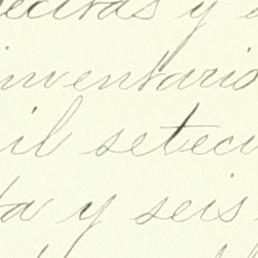 ectras y
inventario
il setecie
ta y seis